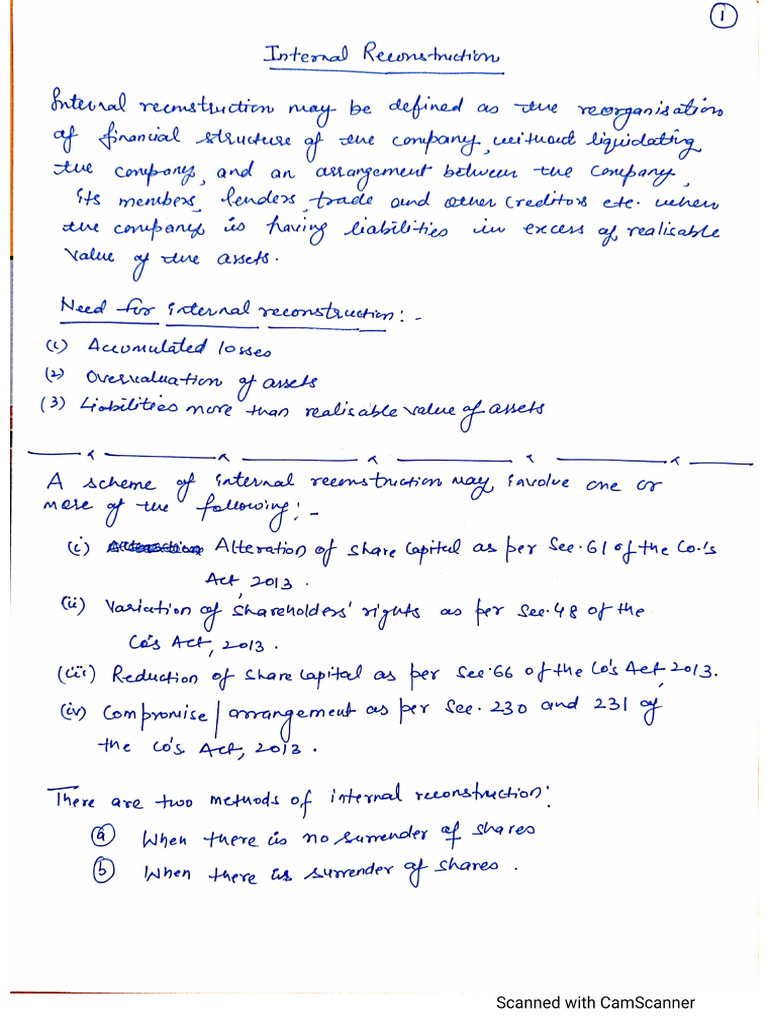 1
Internal Reconstruction
Internal reconstruction may be defined as the reorganisation
of financial structure of the company, without liquidating
the company, and an arrangement between the company,
its members, lenders, trade and other creditors etc. when
the company is having liabilities in excess of realisable
value of the assets.
Need for internal reconstruction:-
(1) Accumulated losses
(2) Overvaluation of assets
(3) Liabilities more than realisable value of assets
A scheme of internal reconstruction may involve one or
more of the following:-
(i) Alteration of share capital as per Sec. 61 of the Co.'s
Act, 2013.
(ii) Variation of shareholders' rights as per Sec. 48 of the
Co's Act, 2013.
(iii) Reduction of share capital as per Sec. 66 of the Co's Act, 2013.
(iv) Compromise/arrangement as per Sec. 230 and 231 of
the Co's. Act, 2013.
There are two methods of internal reconstruction:
(a) When there is no surrender of shares
(b) When there is surrender of shares.
Scanned with CamScanner